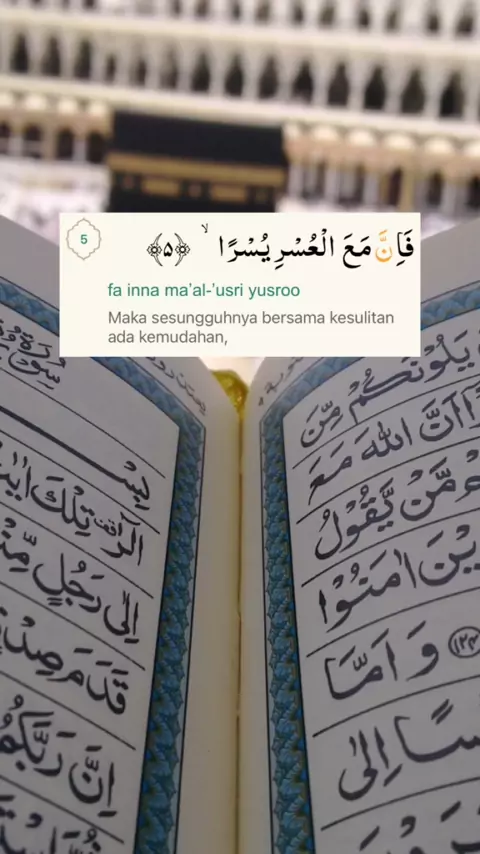 5
فَاِنَّ مَعَ الْعُسْرِ يُسْرًا ۙ ﴿٥﴾
fa inna ma'al-'usri yusroo
Maka sesungguhnya bersama kesulitan
ada kemudahan,
يَلُوْنَكُمْ مِّنَ
اَنَّ اللّٰهَ مَعَ
مَّنْ يَّقُوْلُ
اٰمَنُوْا
﴿١٢٤﴾ وَ اَمَّا
اِلٰى
الٓرٰ تِلْكَ اٰيٰتُ
اِلٰى رَجُلٍ مِّنْ
قَدَمَ صِدْقٍ
اِنَّ رَبَّكُمُ